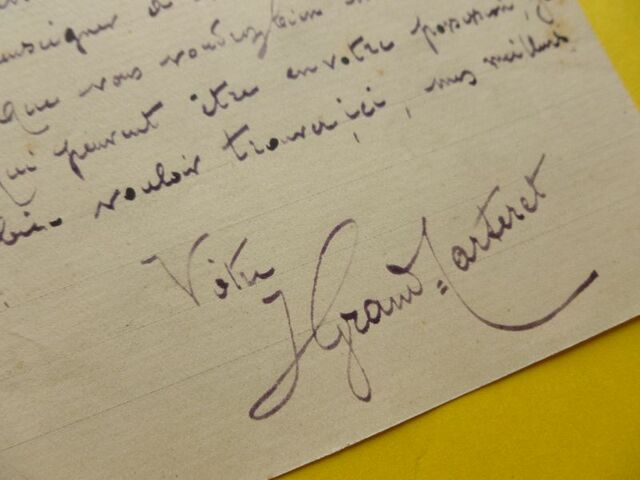 enseigner à
que vous voudrez bien
qui peuvent être en votre possession,
bien vouloir trouver, ici, mes meilleurs
Votre
JGrand=Carteret